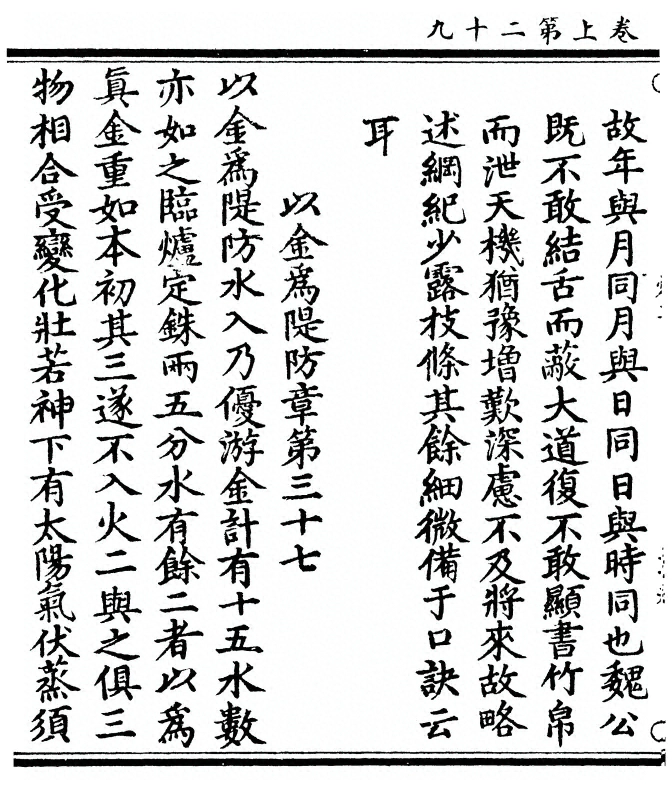 卷上第二十九
故年與月同月與日同日與時同也魏公
既不敢結舌而蔽大道復不敢顯書竹帛
而泄天機猶豫增歎深慮不及將來故略
述綱紀少露枝條其餘細微備于口訣云
耳
以金爲隄防章第三十七
以金爲隄防水入乃優游金計有十五水數
亦如之臨爐定銖兩五分水有餘二者以爲
眞金重如本初其三遂不入火二與之俱三
物相合受變化壯若神下有太陽氣伏蒸須